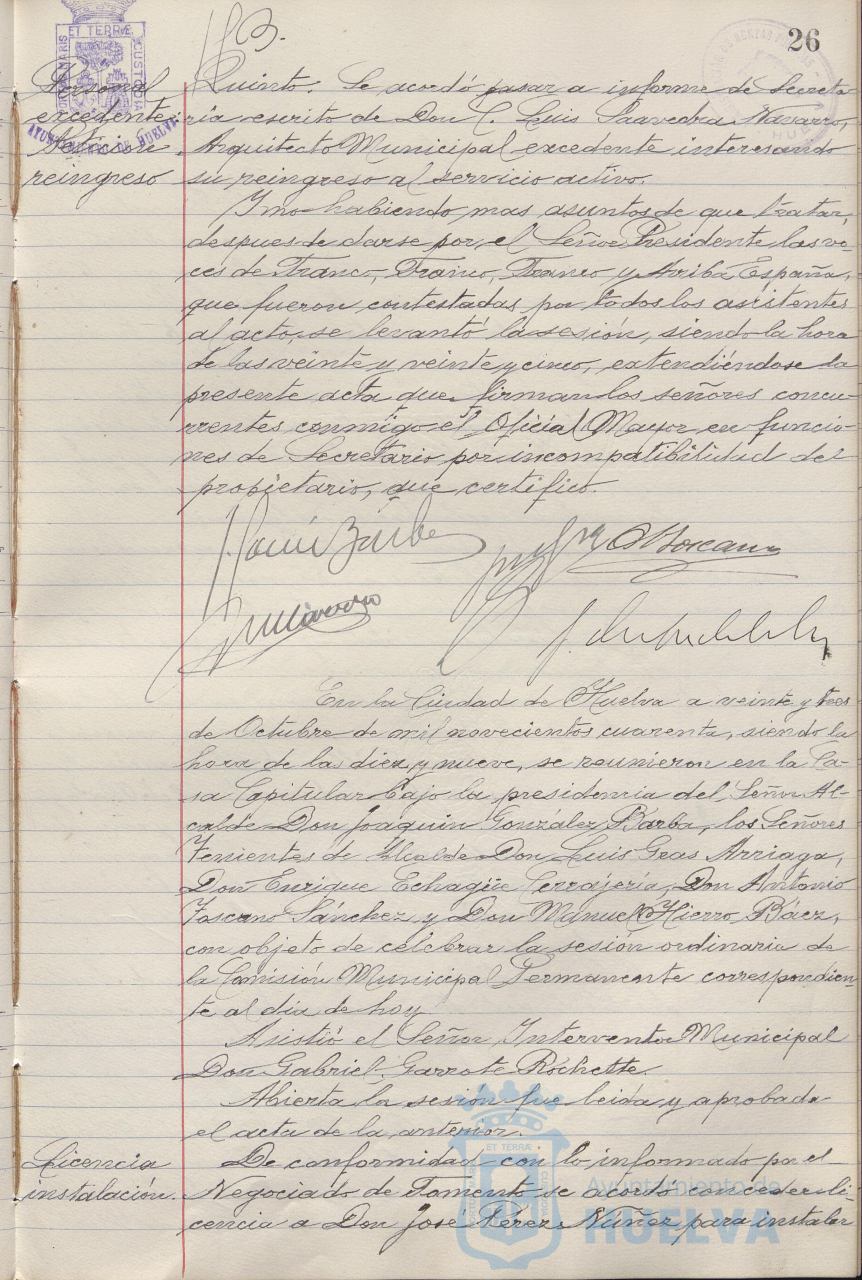 26
Personal
excedente.
Petición
reingreso
Quinto: Se acordó pasar a informe de Secreta-
ria escrito de Don C. Luis Saavedra Navarro,
Arquitecto Municipal excedente interesando
su reingreso al servicio activo.
Y no habiendo mas asuntos de que tratar,
despues de darse por el Señor Presidente las vo-
ces de Franco, Franco, Franco y Arriba España,
que fueron contestadas por todos los asistentes
al acto, se levantó la sesión, siendo la hora
de las veinte y veinte y cinco, extendiéndose la
presente acta que firman los señores concu-
rrentes conmigo el Oficial Mayor en funcio-
nes de Secretario por incompatibilidad del
propietario, que certifico.
En la Ciudad de Huelva a veinte y tres
de Octubre de mil novecientos cuarenta, siendo la
hora de las diez y nueve, se reunieron en la Ca-
sa Capitular bajo la presidencia del Señor Al-
calde Don Joaquín González Barba, los Señores
Tenientes de Alcalde Don Luis Gras Arriaga,
Don Enrique Echagüe Cerrajería, Don Antonio
Toscano Sánchez y Don Manuel Hierro Báez,
con objeto de celebrar la sesión ordinaria de
la Comisión Municipal Permanente correspondien-
te al día de hoy
Asistió el Señor Interventor Municipal
Don Gabriel Garrote Rochette.
Abierta la sesión fue leida y aprobada
el acta de la anterior.
Licencia
instalación.
De conformidad con lo informado por el
Negociado de Fomento se acordó conceder li-
cencia a Don José Pérez Núñez para instalar
AYUNTAMIENTO DE HUELVA
Ayuntamiento de
HUELVA